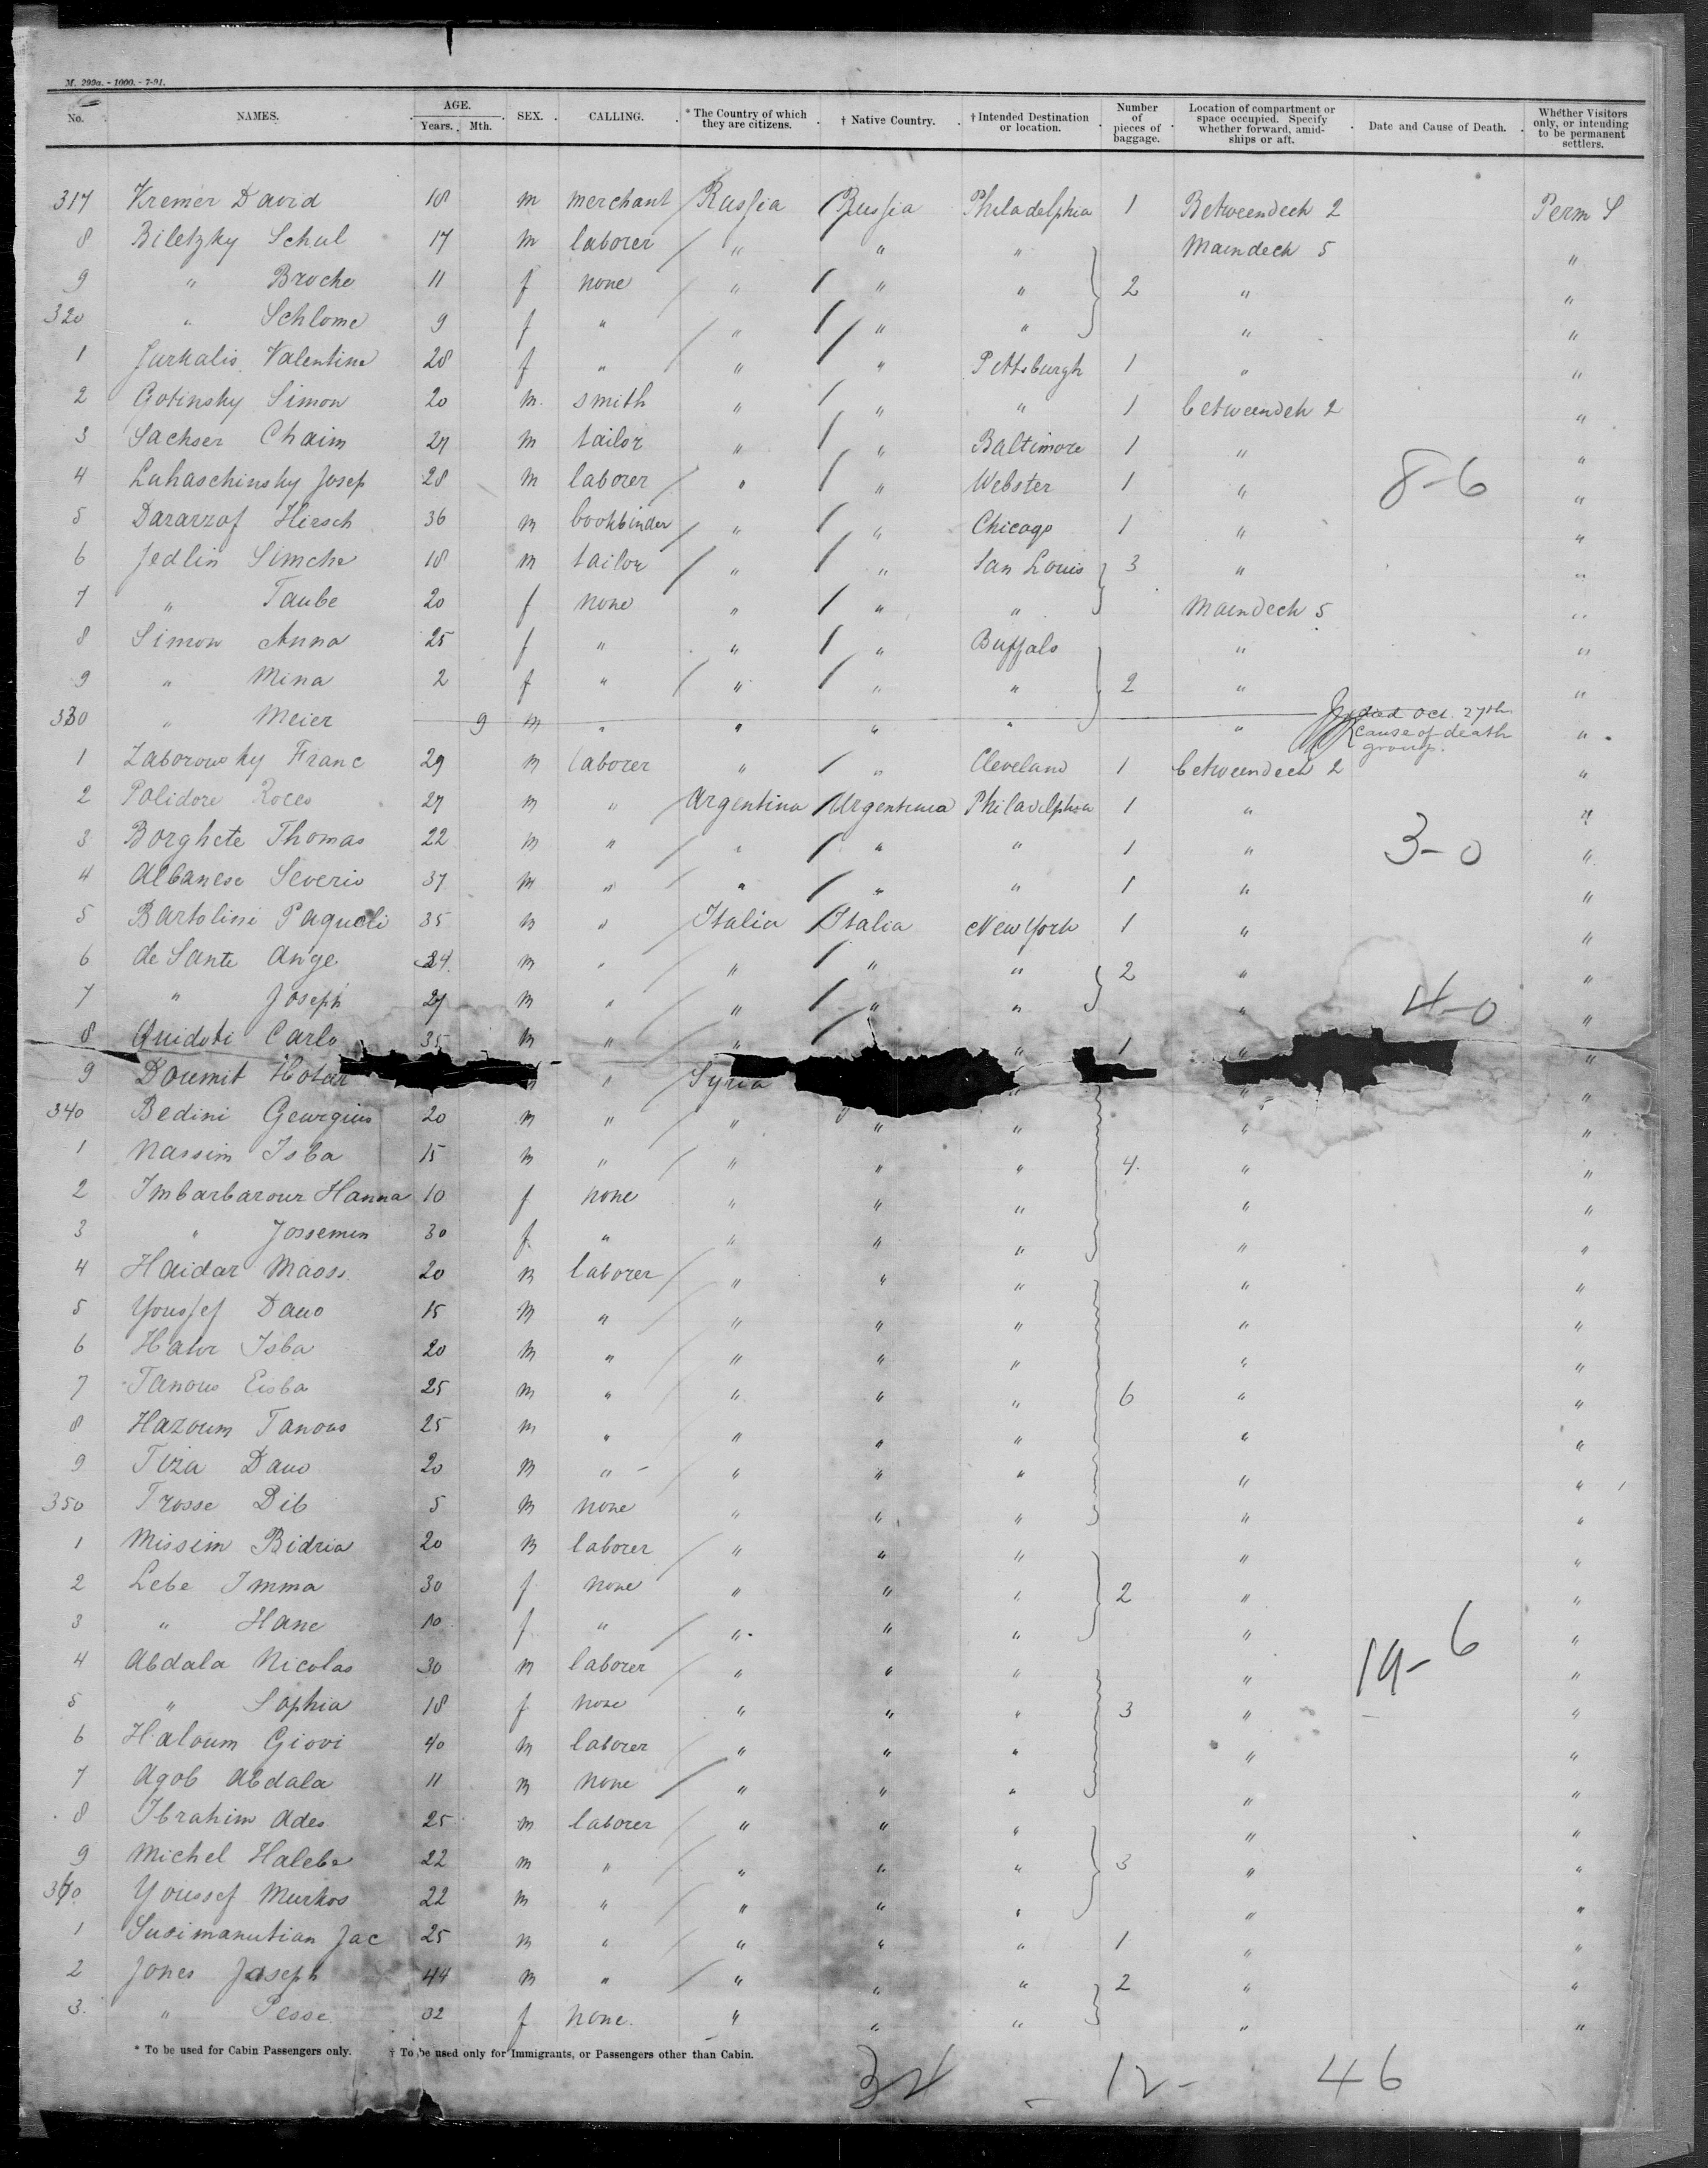 M. 299a. - 1000. - 7-91.
No. NAMES. AGE. Years. Mth. SEX. CALLING. * The Country of which they are citizens. † Native Country. † Intended Destination or location. Number of pieces of baggage. Location of compartment or space occupied. Specify whether forward, amidships or aft. Date and Cause of Death. Whether Visitors only, or intending to be permanent settlers.
317 Kremer David 18 m merchant Russia Russia Philadelphia 1 Betweendeck 2 Perm S
8 Biletzky Schul 17 m laborer " " " Maindeck 5 "
9 " Broche 11 f none " " " 2 " "
320 " Schlome 9 f " " " " " "
1 Jurkalis Valentine 28 f " " " Pittsburgh 1 " "
2 Gotinsky Simon 20 m. smith " " " 1 betweendek 2 "
3 Sachser Chaim 27 m tailor " " Baltimore 1 " "
4 Luhaschinsky Josep 28 m laborer " " Webster 1 " 8-6 "
5 Dararzof Hirsch 36 m bookbinder " " Chicago 1 " "
6 Jedlin Simche 18 m tailor " " San Louis 3 " "
7 " Taube 20 f none " " " Maindeck 5 "
8 Simon Anna 25 f " " " Buffalo " "
9 " Mina 2 f " " " " 2 " "
330 " Meier 9 m " " " " " died Oct. 27th "
cause of death
1 Zaborowsky Franc 29 m laborer " " Cleveland 1 betweendeck 2 "
2 Polidore Rocco 27 m " Argentina Argentina Philadelphia 1 " "
3 Borghete Thomas 22 m " " " " 1 " 3-0 "
4 Albanese Severio 37 m " " " " 1 " "
5 Bartolini Paguoli 35 m " Italia Italia New York 1 " "
6 de Sante Ange 34 m " " " " 2 " "
7 " Joseph 27 m " " " " " 4-0 "
8 Guidoti Carlo 35 m " " " 1 " "
9 Doumit Hotar " Syria "
340 Bedini Georgius 20 m " " " " " "
1 Nassim Isba 15 m " " " " 4 " "
2 Imbarbarour Hanna 10 f none " " " " "
3 " Jossemen 30 f " " " " " "
4 Haidar Maoss 20 m laborer " " " " "
5 Youssef Dauo 15 m " " " " " "
6 Hator Isba 20 m " " " " " "
7 Tanous Eisba 25 m " " " " 6 " "
8 Hazoum Tanous 25 m " " " " " "
9 Tiza Dauo 20 m " " " " " "
350 Trosse Dib 5 m none " " " " "
1 Missim Bidria 20 m laborer " " " " "
2 Lebe Imma 30 f none " " " 2 " "
3 " Hane 10 f " " " " " "
4 Abdala Nicolas 30 m laborer " " " " 19-6 "
5 " Sophia 18 f none " " " 3 " "
6 Haloum Giovi 40 m laborer " " " " "
7 Agob Abdala 11 m none " " " " "
8 Ibrahim Ades 25 m laborer " " " " "
9 Michel Halebe 22 m " " " " 3 " "
360 Youssef Murkos 22 m " " " " " "
1 Susimanutian Jac 25 m " " " " 1 " "
2 Jones Joseph 44 m " " " " 2 " "
3. " Pesse 32 f none. " " " " "
* To be used for Cabin Passengers only. † To be used only for Immigrants, or Passengers other than Cabin.
34 - 12 - 46